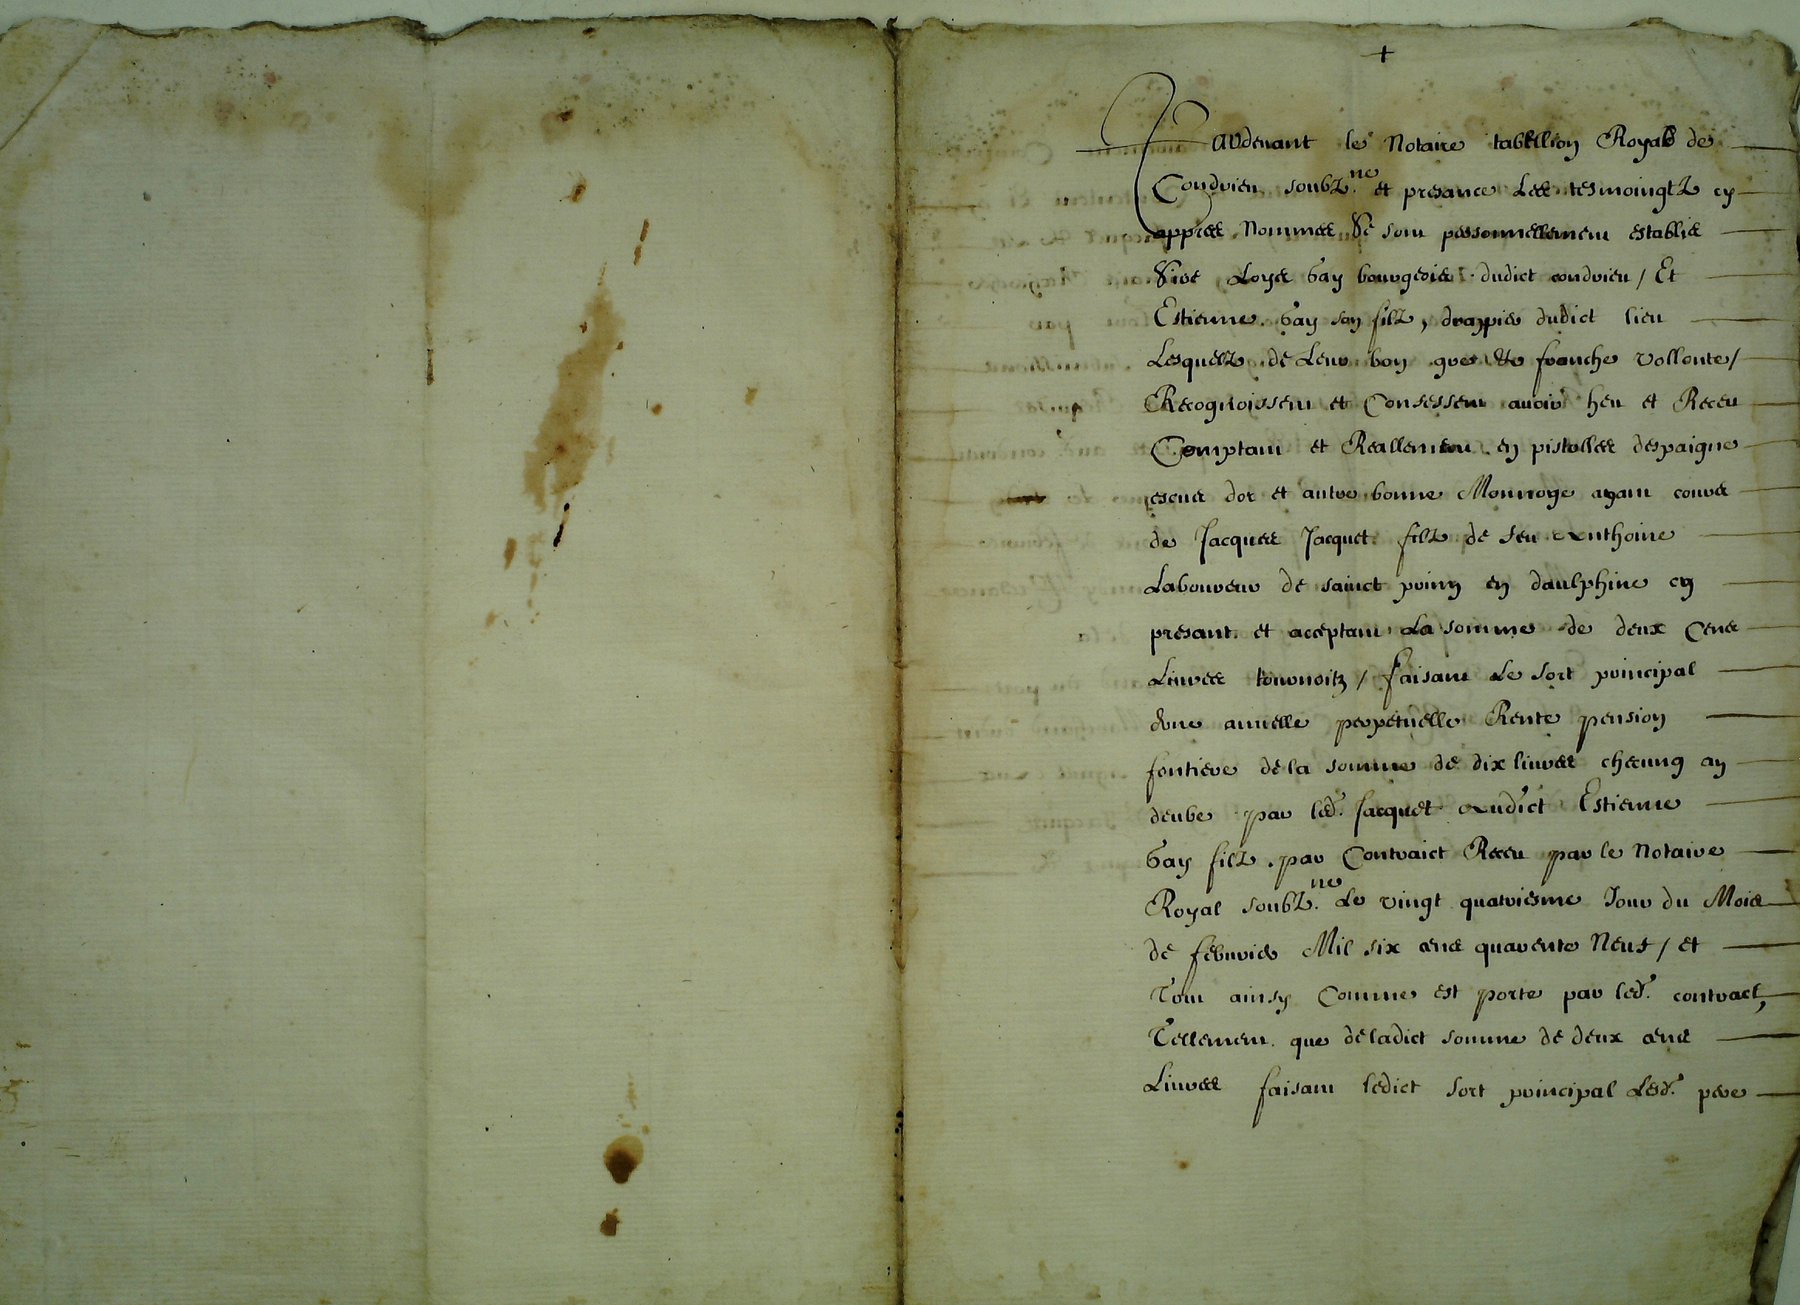 +
Pardevant le Notaire tabellion Royal de
Condrieu soubz.ne et presance des tesmoingtz cy
appres nommes Se sont personnellement establis
Sire Loys Gay bourgeois dudict condrieu / Et
Estienne Gay son filz, drappier dudict lieu
Lesquelz de leur bon gre et franche vollonte /
Recognoissent et Confessent avoir heu et Receu
Comptant et Reallement en pistolles despaigne
escus dor et autre bonne Monnoye ayant cours
de Jacques Jacquet filz de feu Anthoine
Laboureur de sainct prim en daulphine cy
presant et acceptant La somme de deux Cens
Livres tournoitz / faisant Le sort principal
dune annelle perpetuelle Rente pension
fontiere de la somme de dix livres checung an
deube par led. Jacquet Audict Estienne
Gay filz par Contraict Receu par le Notaire
Royal soubz.ne Le vingt quatriesme Jour du Mois
de febvrier Mil six cens quarente Neuf / et
Tout ainsy Comme est porte par led. contract,
Tellement que de ladict somme de deux cens
Livres faisant ledict sort principal Lesd. pere